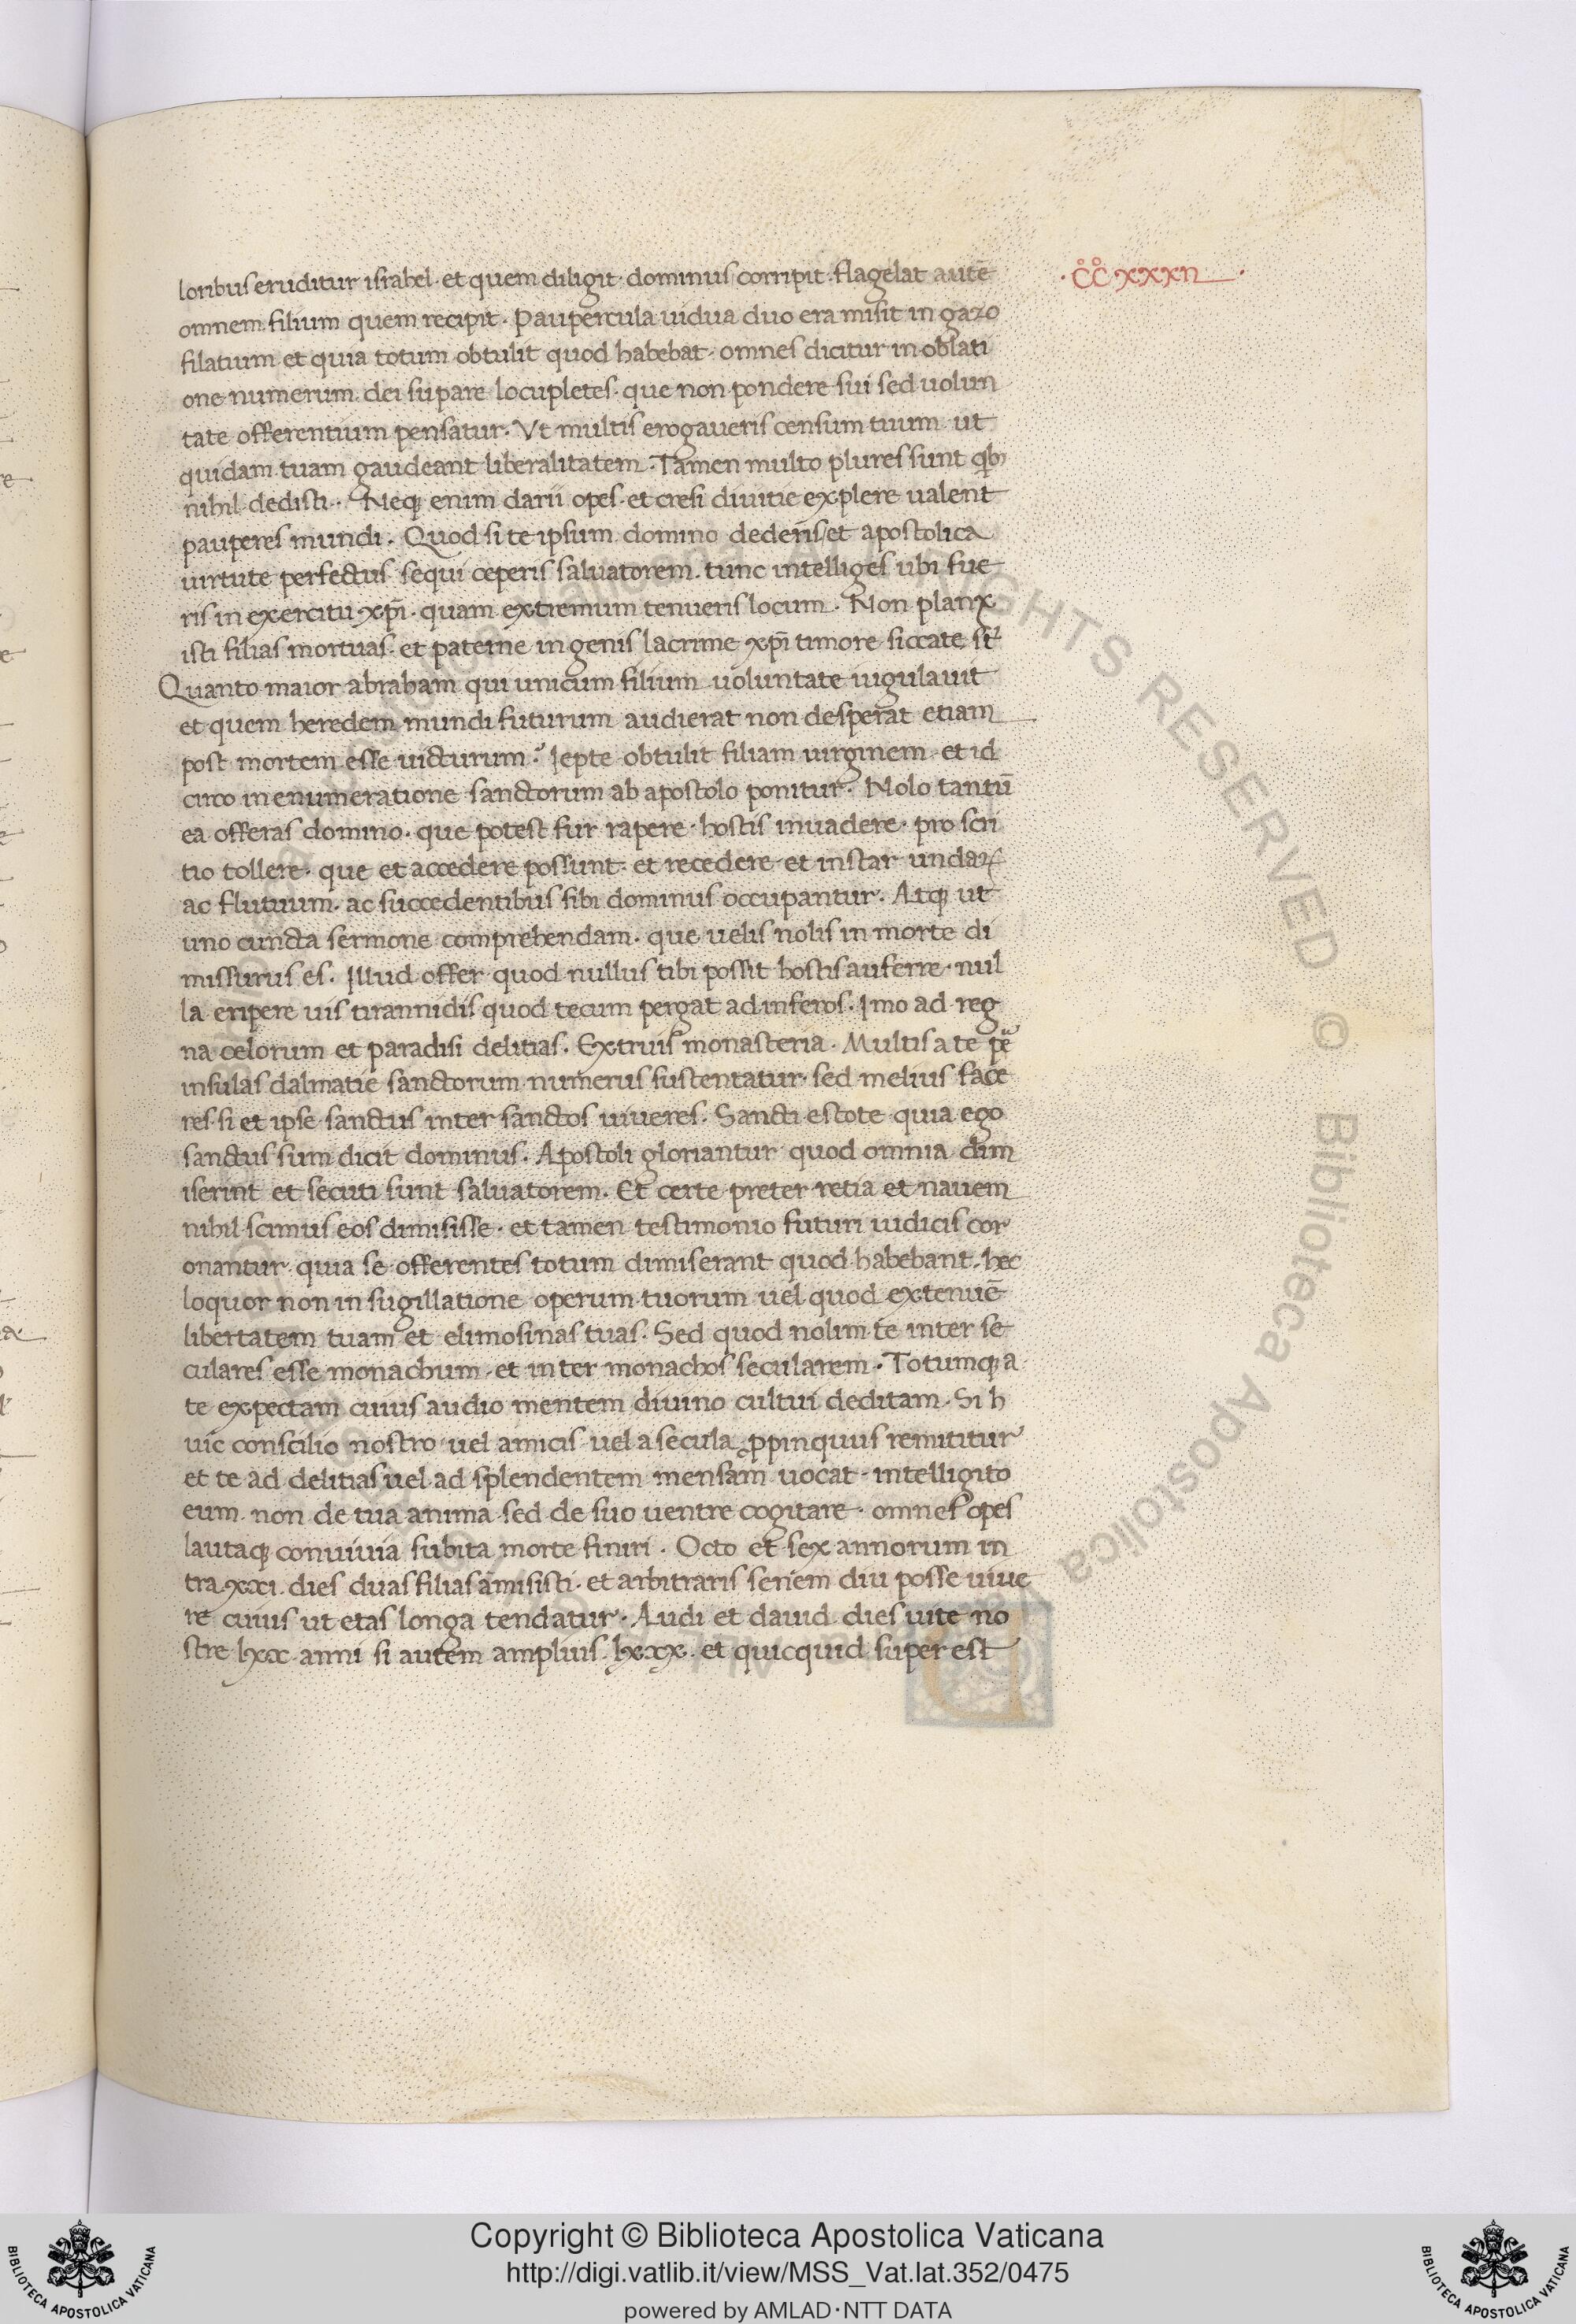 loribus eruditur israhel · et quem diligit · dominus corripit · flagelat autē
· CC xxxii ·
omnem filium quem recipit · Paupercula uidua duo era misit in gazo
filatium et quia totum obtulit quod habebat · omnes dicitur in oblati
one numerum dei supare locupletes · que non pondere sui sed uolun
tate offerentium pensatur · Vt multis erogaueris censum tuum ut
quidam tuam gaudeant liberalitatem · Tamen multo plures sunt qb;
nihil dedisti · Neq; enim darii opes · et cresi diuitie explere ualent
pauperes mundi · Quod si te ipsum domino dederis / et apostolica
uirtute perfectus sequi ceperis saluatorem · tunc intelliges ubi fue
ris in exercitu xp̄i · quam extremum tenueris locum · Non planx
isti filias mortuas · et paterne in genis lacrime xp̄i timore siccate st̄
Quanto maior abraham qui unicum filium uoluntate iugulauit
et quem heredem mundi futurum audierat non desperat etiam
post mortem esse uicturum · Iepte obtulit filiam uirginem · et id
circo in enumeratione sanctorum ab apostolo ponitur · Nolo tantū
ea offeras domino · que potest fur rapere · hostis inuadere · pro scri
tio tollere · que et accedere possunt · et recedere · et instar undaꝝ
ac flutuum · ac succedentibus sibi dominus occupantur · Atq; ut
uno cuncta sermone comprehendam · que uelis nolis in morte di
missurus es · Illud offer quod nullus tibi possit hostis auferre · nul
la eripere uis tirannidis quod tecum pergat ad inferos · Imo ad reg
na celorum et paradisi delitias · Extruis monasteria · Multis a te
insulas dalmatie sanctorum numerus sustentatur · sed melius face
res · si et ipse sanctus inter sanctos uiueres · Sancti estote quia ego
sanctus sum dicit dominus · Apostoli gloriantur quod omnia dim
iserint et secuti sunt saluatorem · Et certe preter retia et nauem
nihil scimus eos dimisisse · et tamen testimonio futuri iudicis cor
onantur · quia se offerentes totum dimiserant quod habebant · hec
loquor non in sugillatione operum tuorum uel quod extenuē
libertatem tuam et elimosinas tuas · Sed quod nolim te inter se
culares esse monachum · et inter monachos secularem · Totumq; a
te expectam cuius audio mentem diuino cultui deditam · Si h
uic conscilio nostro uel amicis uel a secula ꝓpinquus remititur
et te ad delitias uel ad splendentem mensam uocat · intelligito
eum non de tua anima sed de suo uentre cogitare · omnes opes
lautaq; conuiuia subita morte finiri · Octo et sex annorum in
tra xxi · dies duas filias amisisti · et arbitraris seriem diu posse uiue
re cuius ut etas longa tendatur · Audi et dauid dies uite no
stre lxx · anni si autem amplius · lxxx · et quicquid super est
Biblioteca Apostolica Vaticana
ALL RIGHTS RESERVED © Biblioteca Apostolica
BIBLIOTECA APOSTOLICA VATICANA
Copyright © Biblioteca Apostolica Vaticana
http://digi.vatlib.it/view/MSS_Vat.lat.352/0475
powered by AMLAD · NTT DATA
BIBLIOTECA APOSTOLICA VATICANA